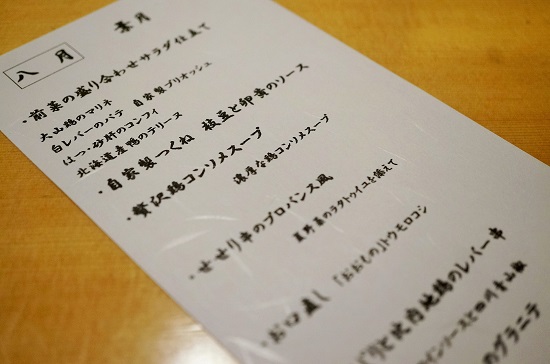 葉月
八月
・前菜の盛り合わせサラダ仕立て
大山鶏のマリネ
白レバーのパテ 自家製ブリオッシュ
はつ、砂肝のコンフィ
北海道産鴨のテリーヌ
・自家製つくね 枝豆と卵黄のソース
・贅沢鶏コンソメスープ
濃厚な鶏コンソメスープ
・せせり串のプロバンス風
夏野菜のラタトゥイユを添えて
・お口直し 「おおもの」トウモロコシ
と比内地鶏のレバー串
インソースと四川青山椒
のグラニテ